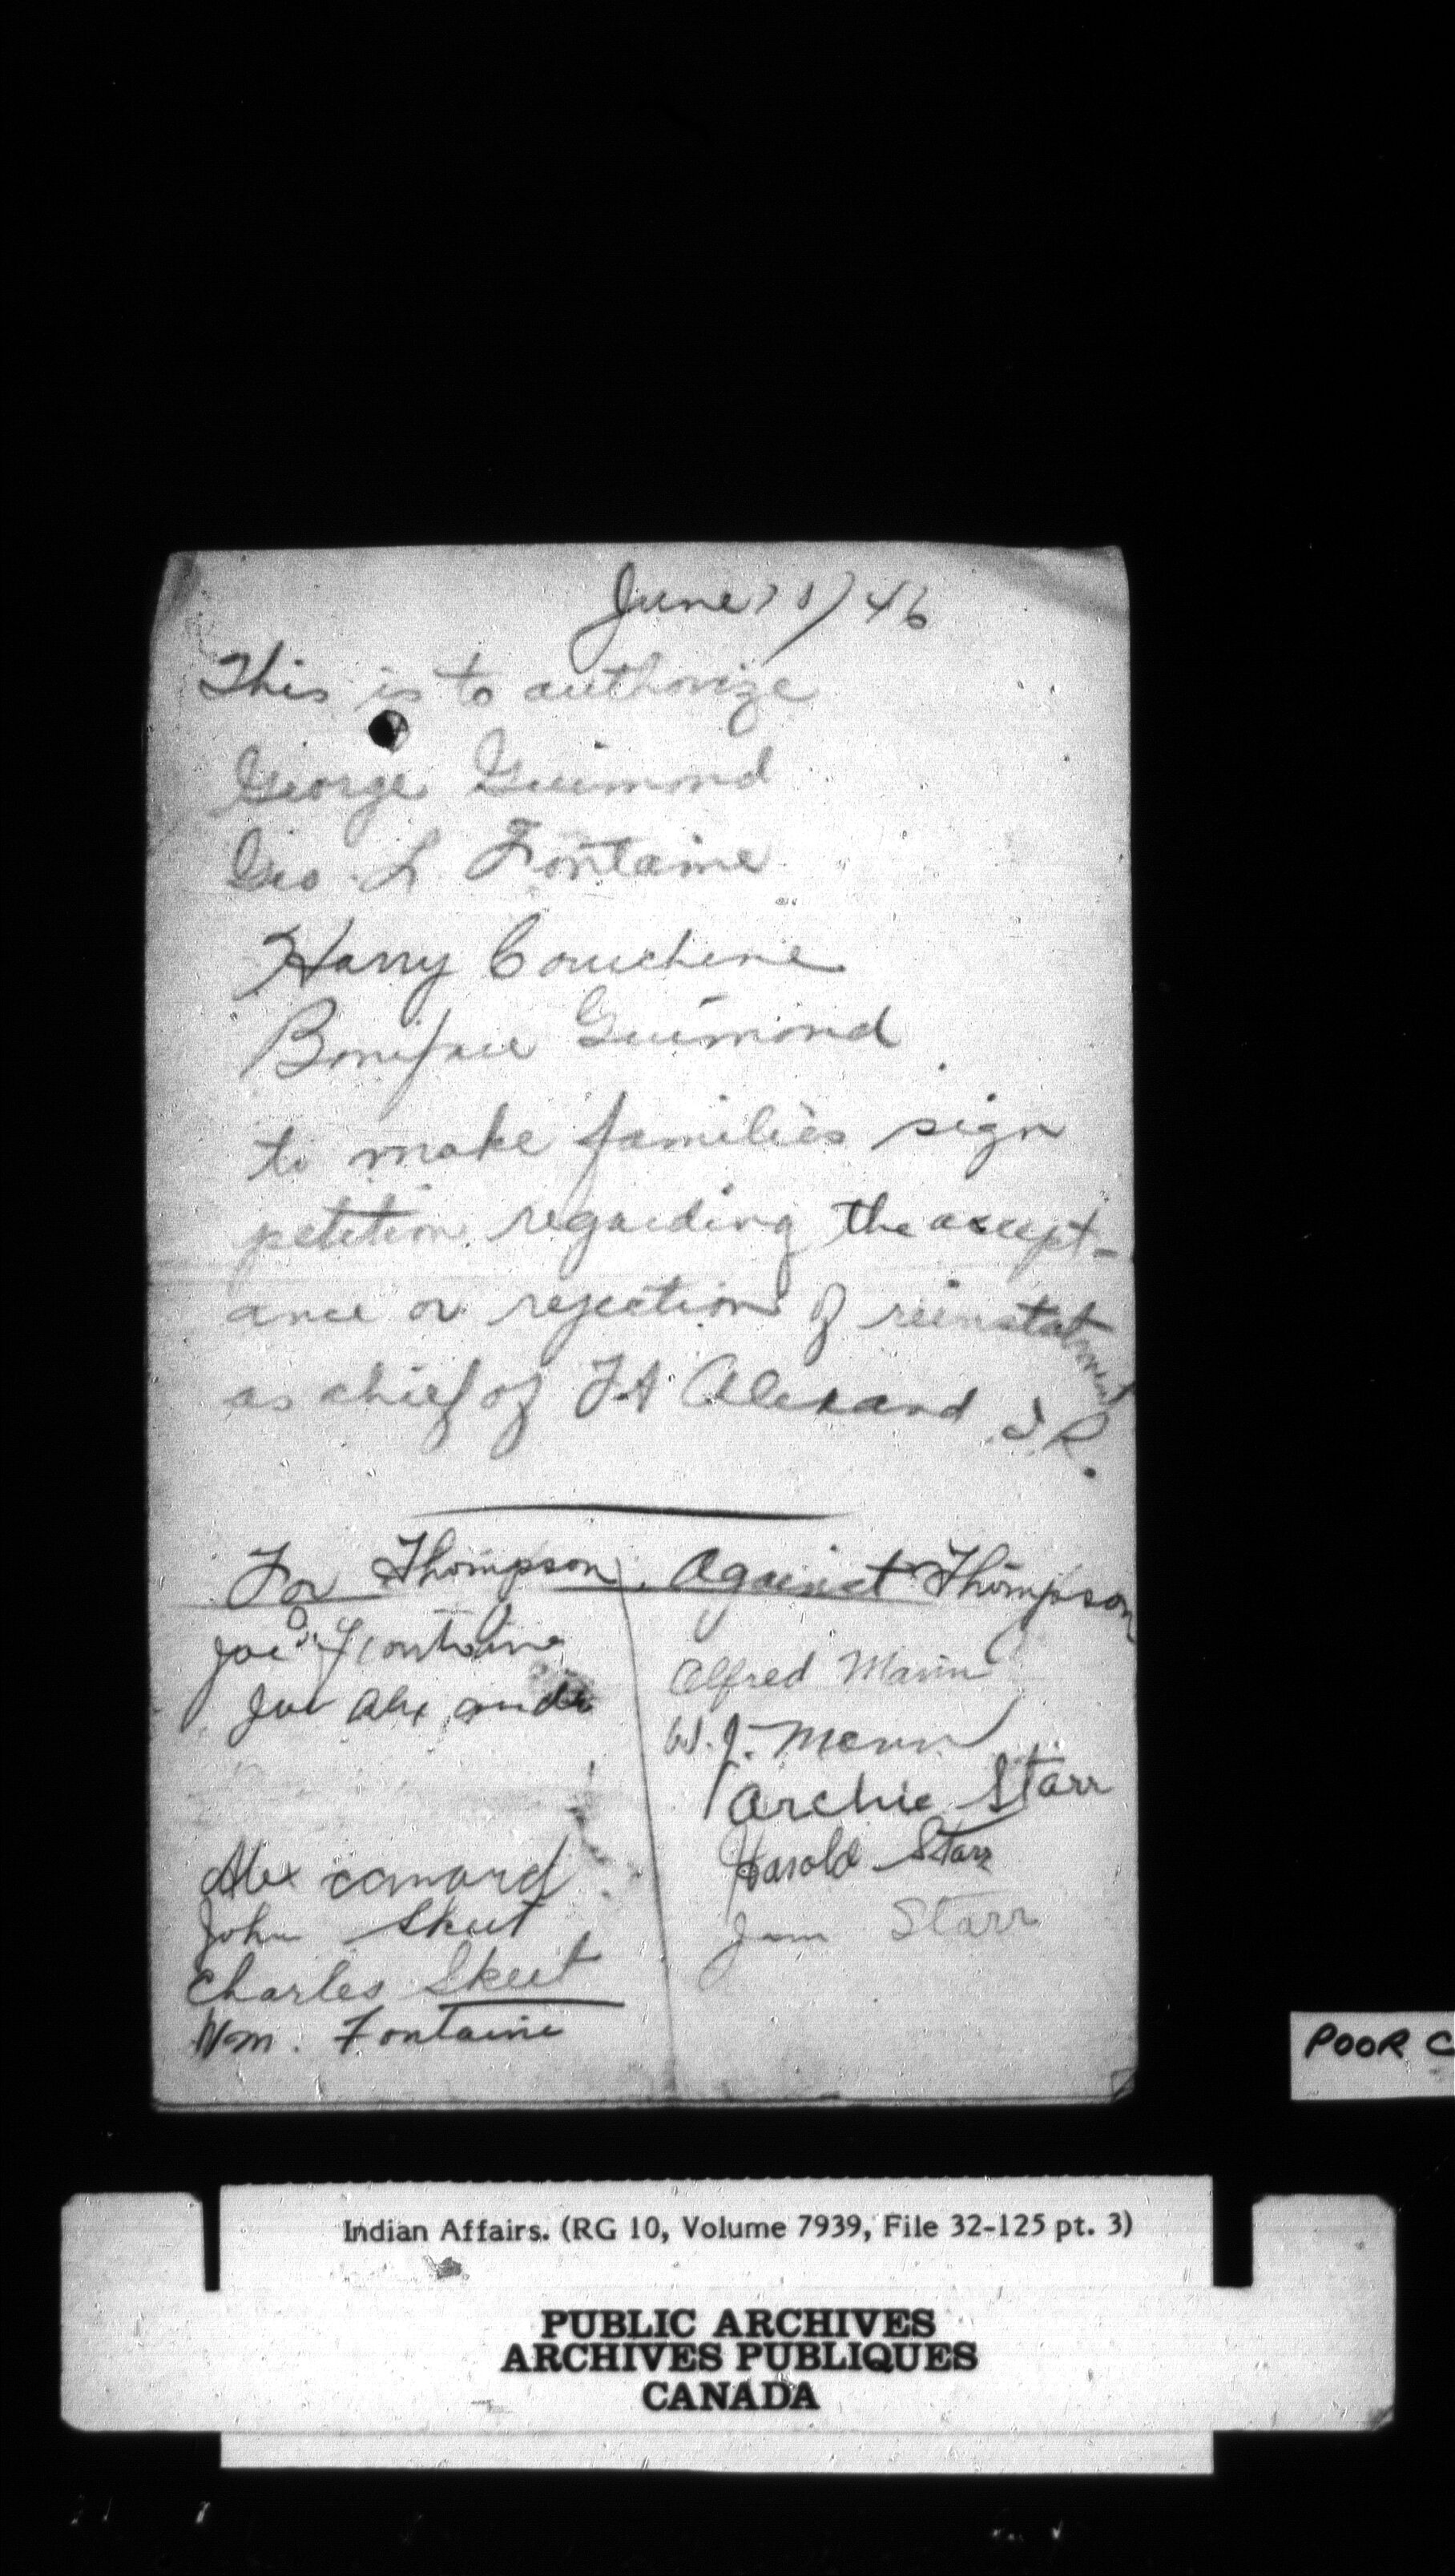 June 46
This is to authorize
George Guimond
Geo. L Fontaine
Harry Couchene
Boniface Guimond
to make families sign
petition regarding the accept-
ance or rejection of reinstatement
as chief of Ft Alexand I.R.
For Thompson
Joe Fontaine
Joe Alex
Alex canard
John Skeet
Charles Skeet
Wm. Fontaine
Against Thompson
Alfred Mann
W. J. Mann
Archie Starr
Harold Starr
Jim Starr
POOR C
Indian Affairs. (RG 10, Volume 7939, File 32-125 pt. 3)
PUBLIC ARCHIVES
ARCHIVES PUBLIQUES
CANADA